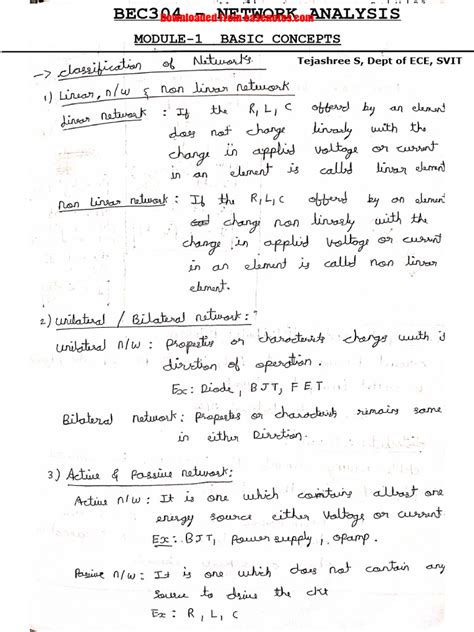 BEC304 - NETWORK ANALYSIS
Downloaded from
MODULE-1 BASIC CONCEPTS
Tejashree S, Dept of ECE, SVIT
-> classification of Networks
1) Linear, n/w & non linear network
Linear network : If the R, L, C offered by an element
does not change linearly with the
change in applied voltage or current
in an element is called linear element
Non linear network : If the R, L, C offered by an element
change non linearly with the
change in applied voltage or current
in an element is called non linear
element.
2) Unilateral / Bilateral network :
Unilateral n/w : Properties or characteristics changes with
direction of operation.
Ex: Diode, BJT, FET
Bilateral network : Properties or characteristics remains same
in either Direction.
3) Active & Passive network :
Active n/w : It is one which contains atleast one
energy source either voltage or current
Ex: BJT, power supply, opamp.
Passive n/w : It is one which does not contain any
source to drive the ckt
Ex : R, L, C